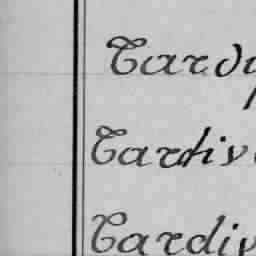 Tardy
Tartiv
Tardiv